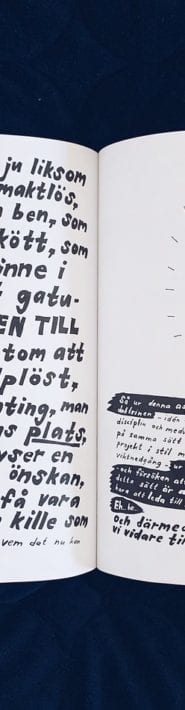 ju liksom
maktlös,
ben, som
kött, som
inne i
gatu-
EN TILL
tom att
plöst,
nting, man
ns plats,
yser en
önskan,
få vara
kille som
vem det nu kan
Så ur denna
- idén
disciplin och
på samma sätt
projekt i stil
viktnedgång - ur
och försöken att
detta sätt är
bara att leda till
Eh, ja.
Och därme
vi vidare ti